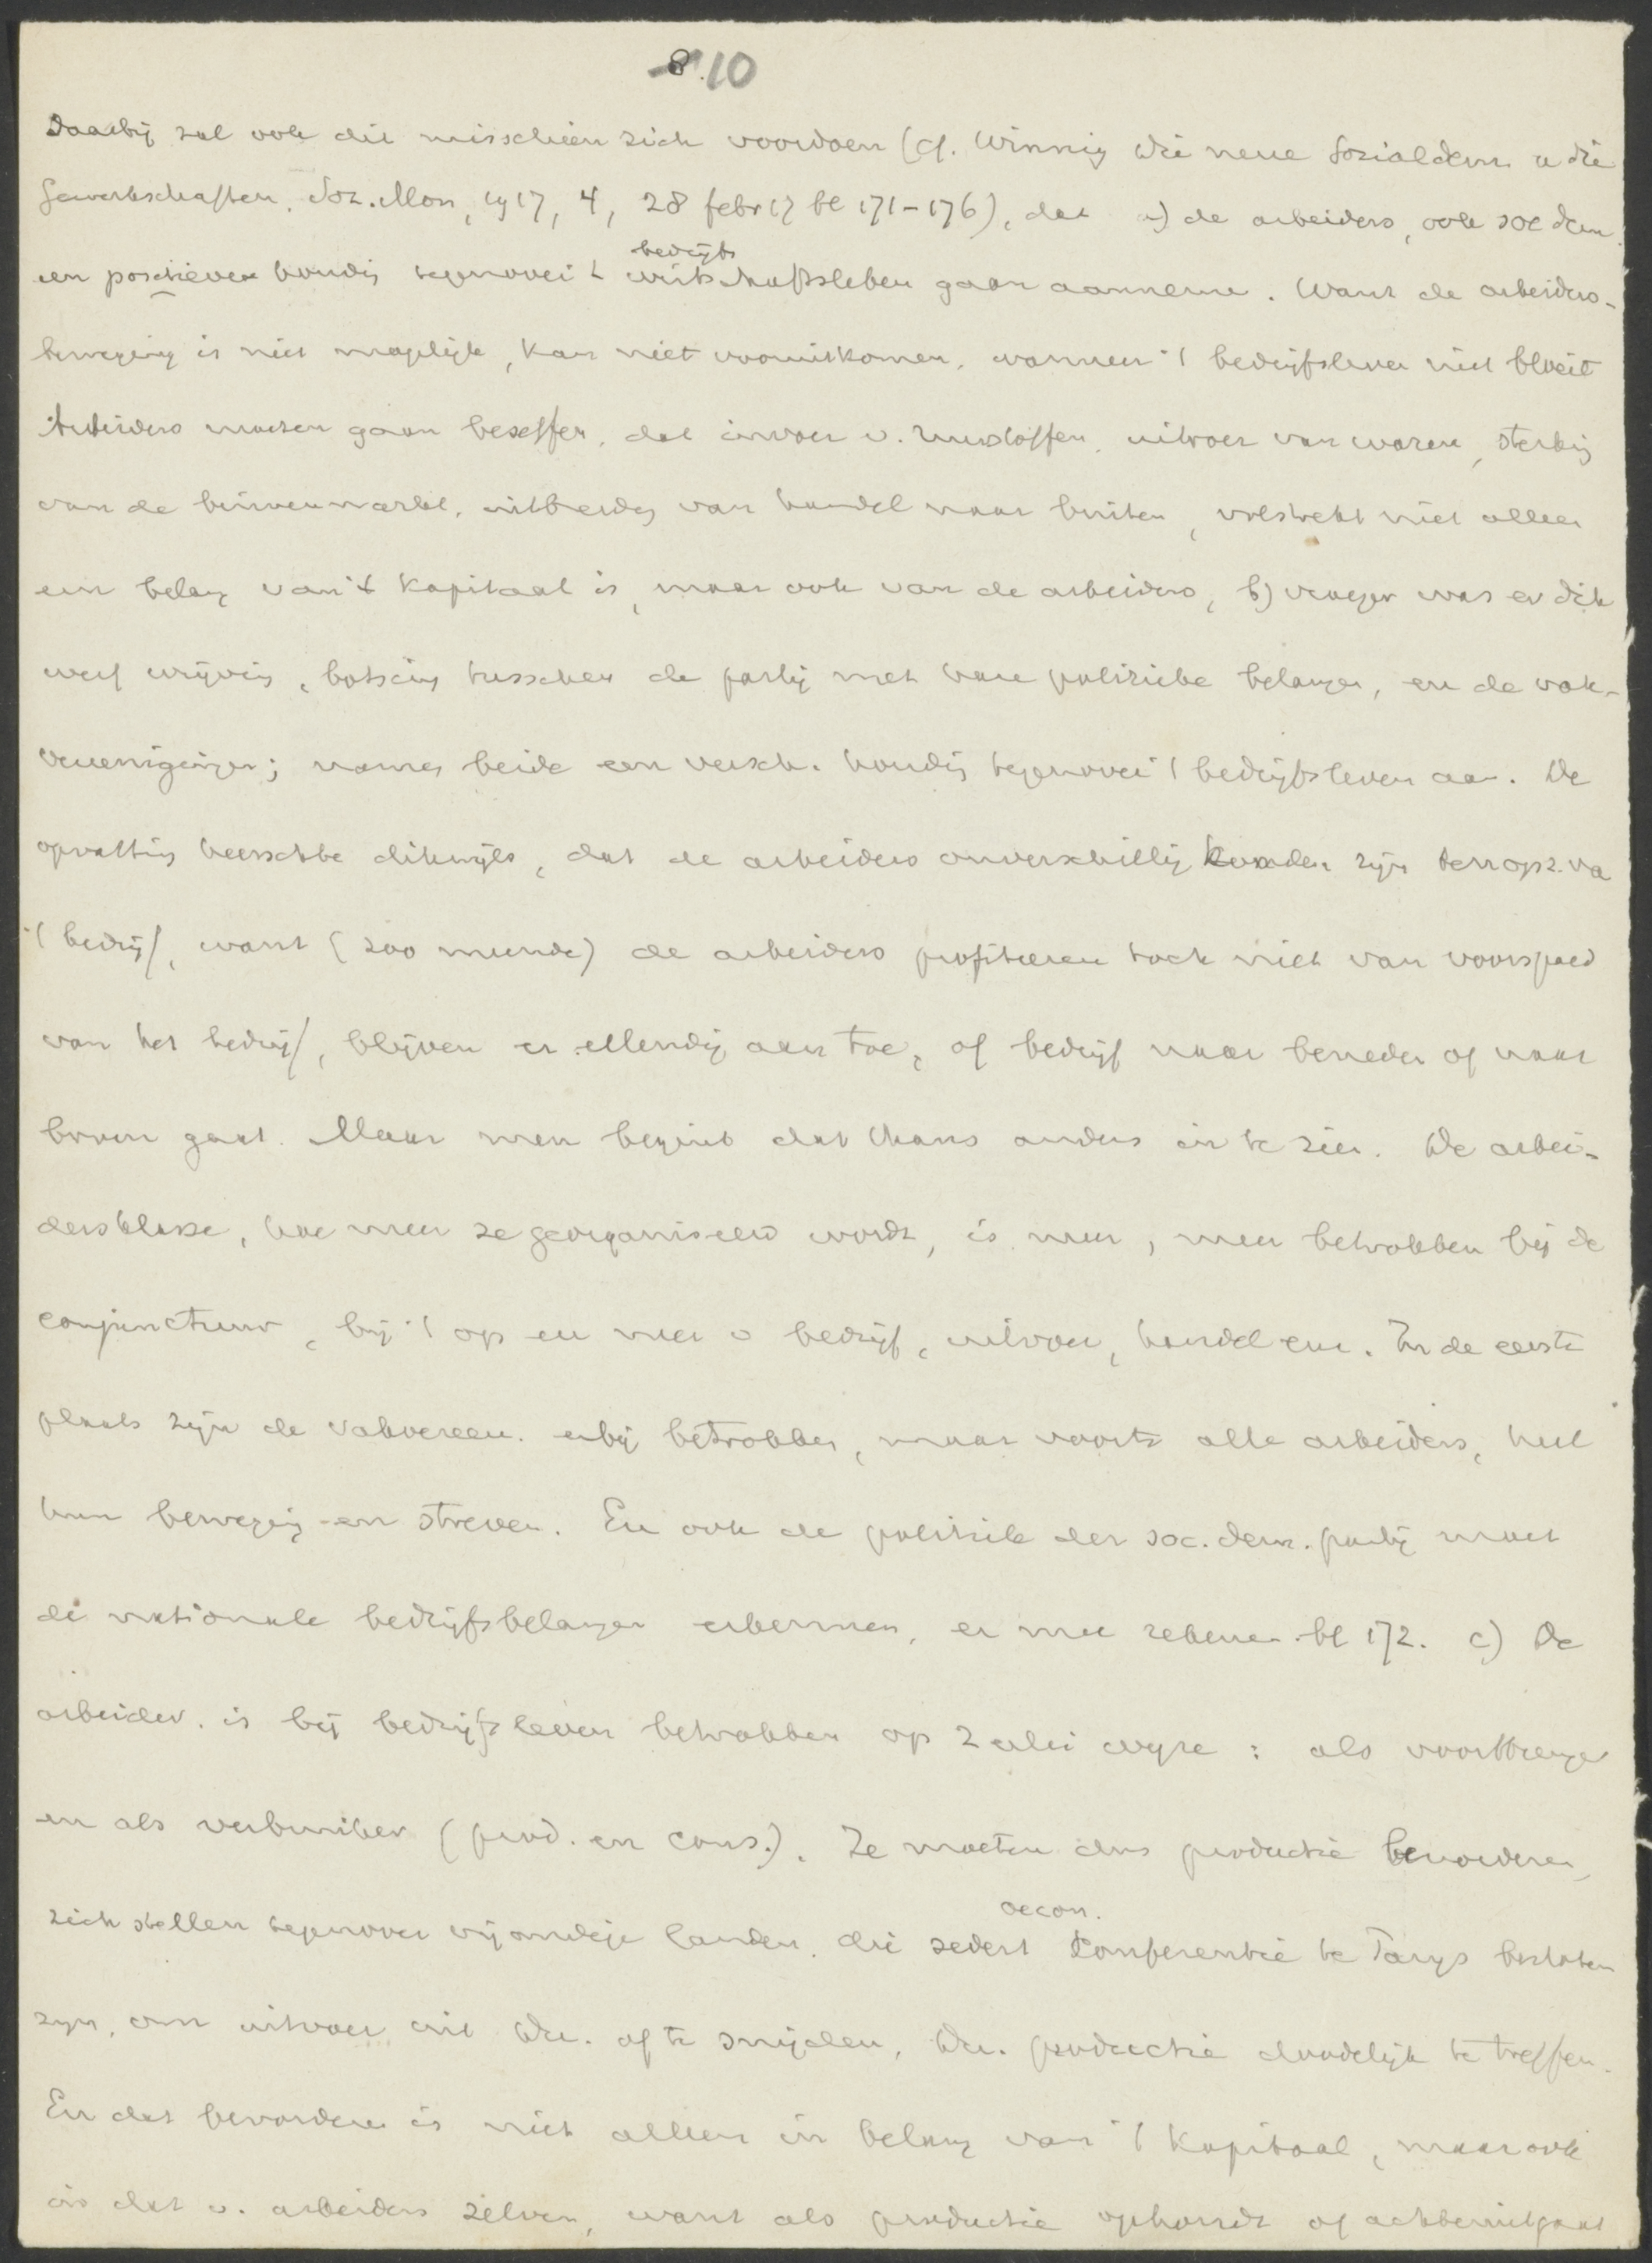 8. 10
Daarbij zal ook dit misschien zich voordoen (cf. Winnig Die neue Sozialdem u die
Gewerkschaften. Soz. Mon, 1917, 4, 28 febr 17 bl 171-176), dat a) de arbeiders, ook soc dem.
een positieven houdg tegenover 't bedrijfs wirtschaftsleben gaan aannemen. Want de arbeiders-
beweging is niet mogelijk, kan niet vooruitkomen, wanneer 't bedrijfsleven niet bloeit
Arbeiders moeten gaan beseffen, dat invoer v. ruwstoffen, uitvoer van waren, sterkg
van de binnenmarkt, uitbreidg van handel naar buiten, volstrekt niet alleen
een belang van 't kapitaal is, maar ook van de arbeiders, b) vroeger was er dik
werf wrijving, botsing tusschen de partij met hare politieke belangen, en de vak-
vereenigingen; namen beide een versch. houdg tegenover 't bedrijfsleven aan. De
opvatting heerschte dikwijls, dat de arbeiders onverschillig konden zijn ten opz. va
't bedrijf, want (zoo meende) de arbeiders profiteeren toch niet van voorspoed
van het bedrijf, blijven er ellendig aan toe, of bedrijf naar beneden of naar
boven gaat. Maar men begint dat thans anders in te zien. De arbei-
dersklasse, hoe meer ze georganiseerd wordt, is meer, meer betrokken bij de
conjunctuur, bij 't op en neer v bedrijf, uitvoer, handel enz. In de eerste
plaats zijn de vakvereen. erbij betrokken, maar voorts alle arbeiders, heel
hun beweging en streven. En ook de politiek der soc. dem. partij moet
de nationale bedrijfsbelangen erkennen, er mee rekenen. bl 172. c) De
arbeider. is bij bedrijfsleven betrokken op 2 erlei wijze: als voortbrenger
en als verbruiker (prod. en cons.). Ze moeten dus productie bevorderen,
zich stellen tegenover vijandige landen, die sedert oecon. Conferentie te Parijs besloten
zijn, om uitvoer uit De. af te snijden, De. productie doodelijk te treffen.
En dat bevorderen is niet alleen in belang van 't kapitaal, maar ook
in dat v. arbeiders zelven, want als productie ophoudt of achteruitgaat